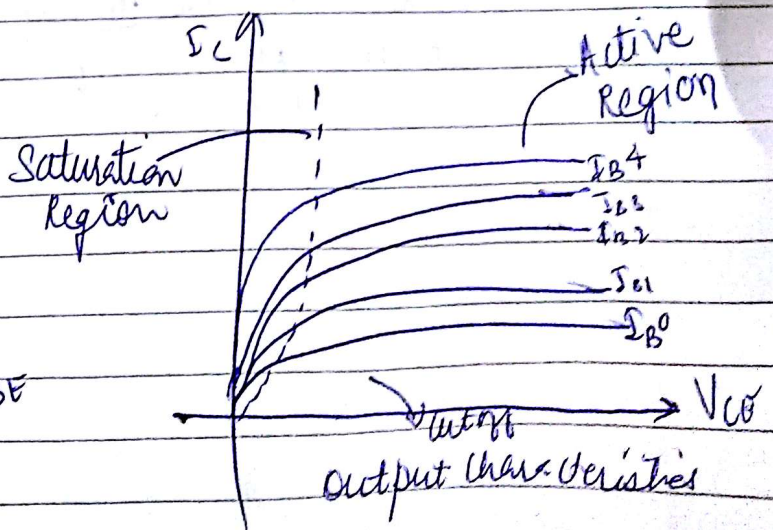 IC
Active
Region
Saturation
Region
IB4
IB3
IB2
IB1
IB0
BE
VCE
Cutoff
Output Characteristics